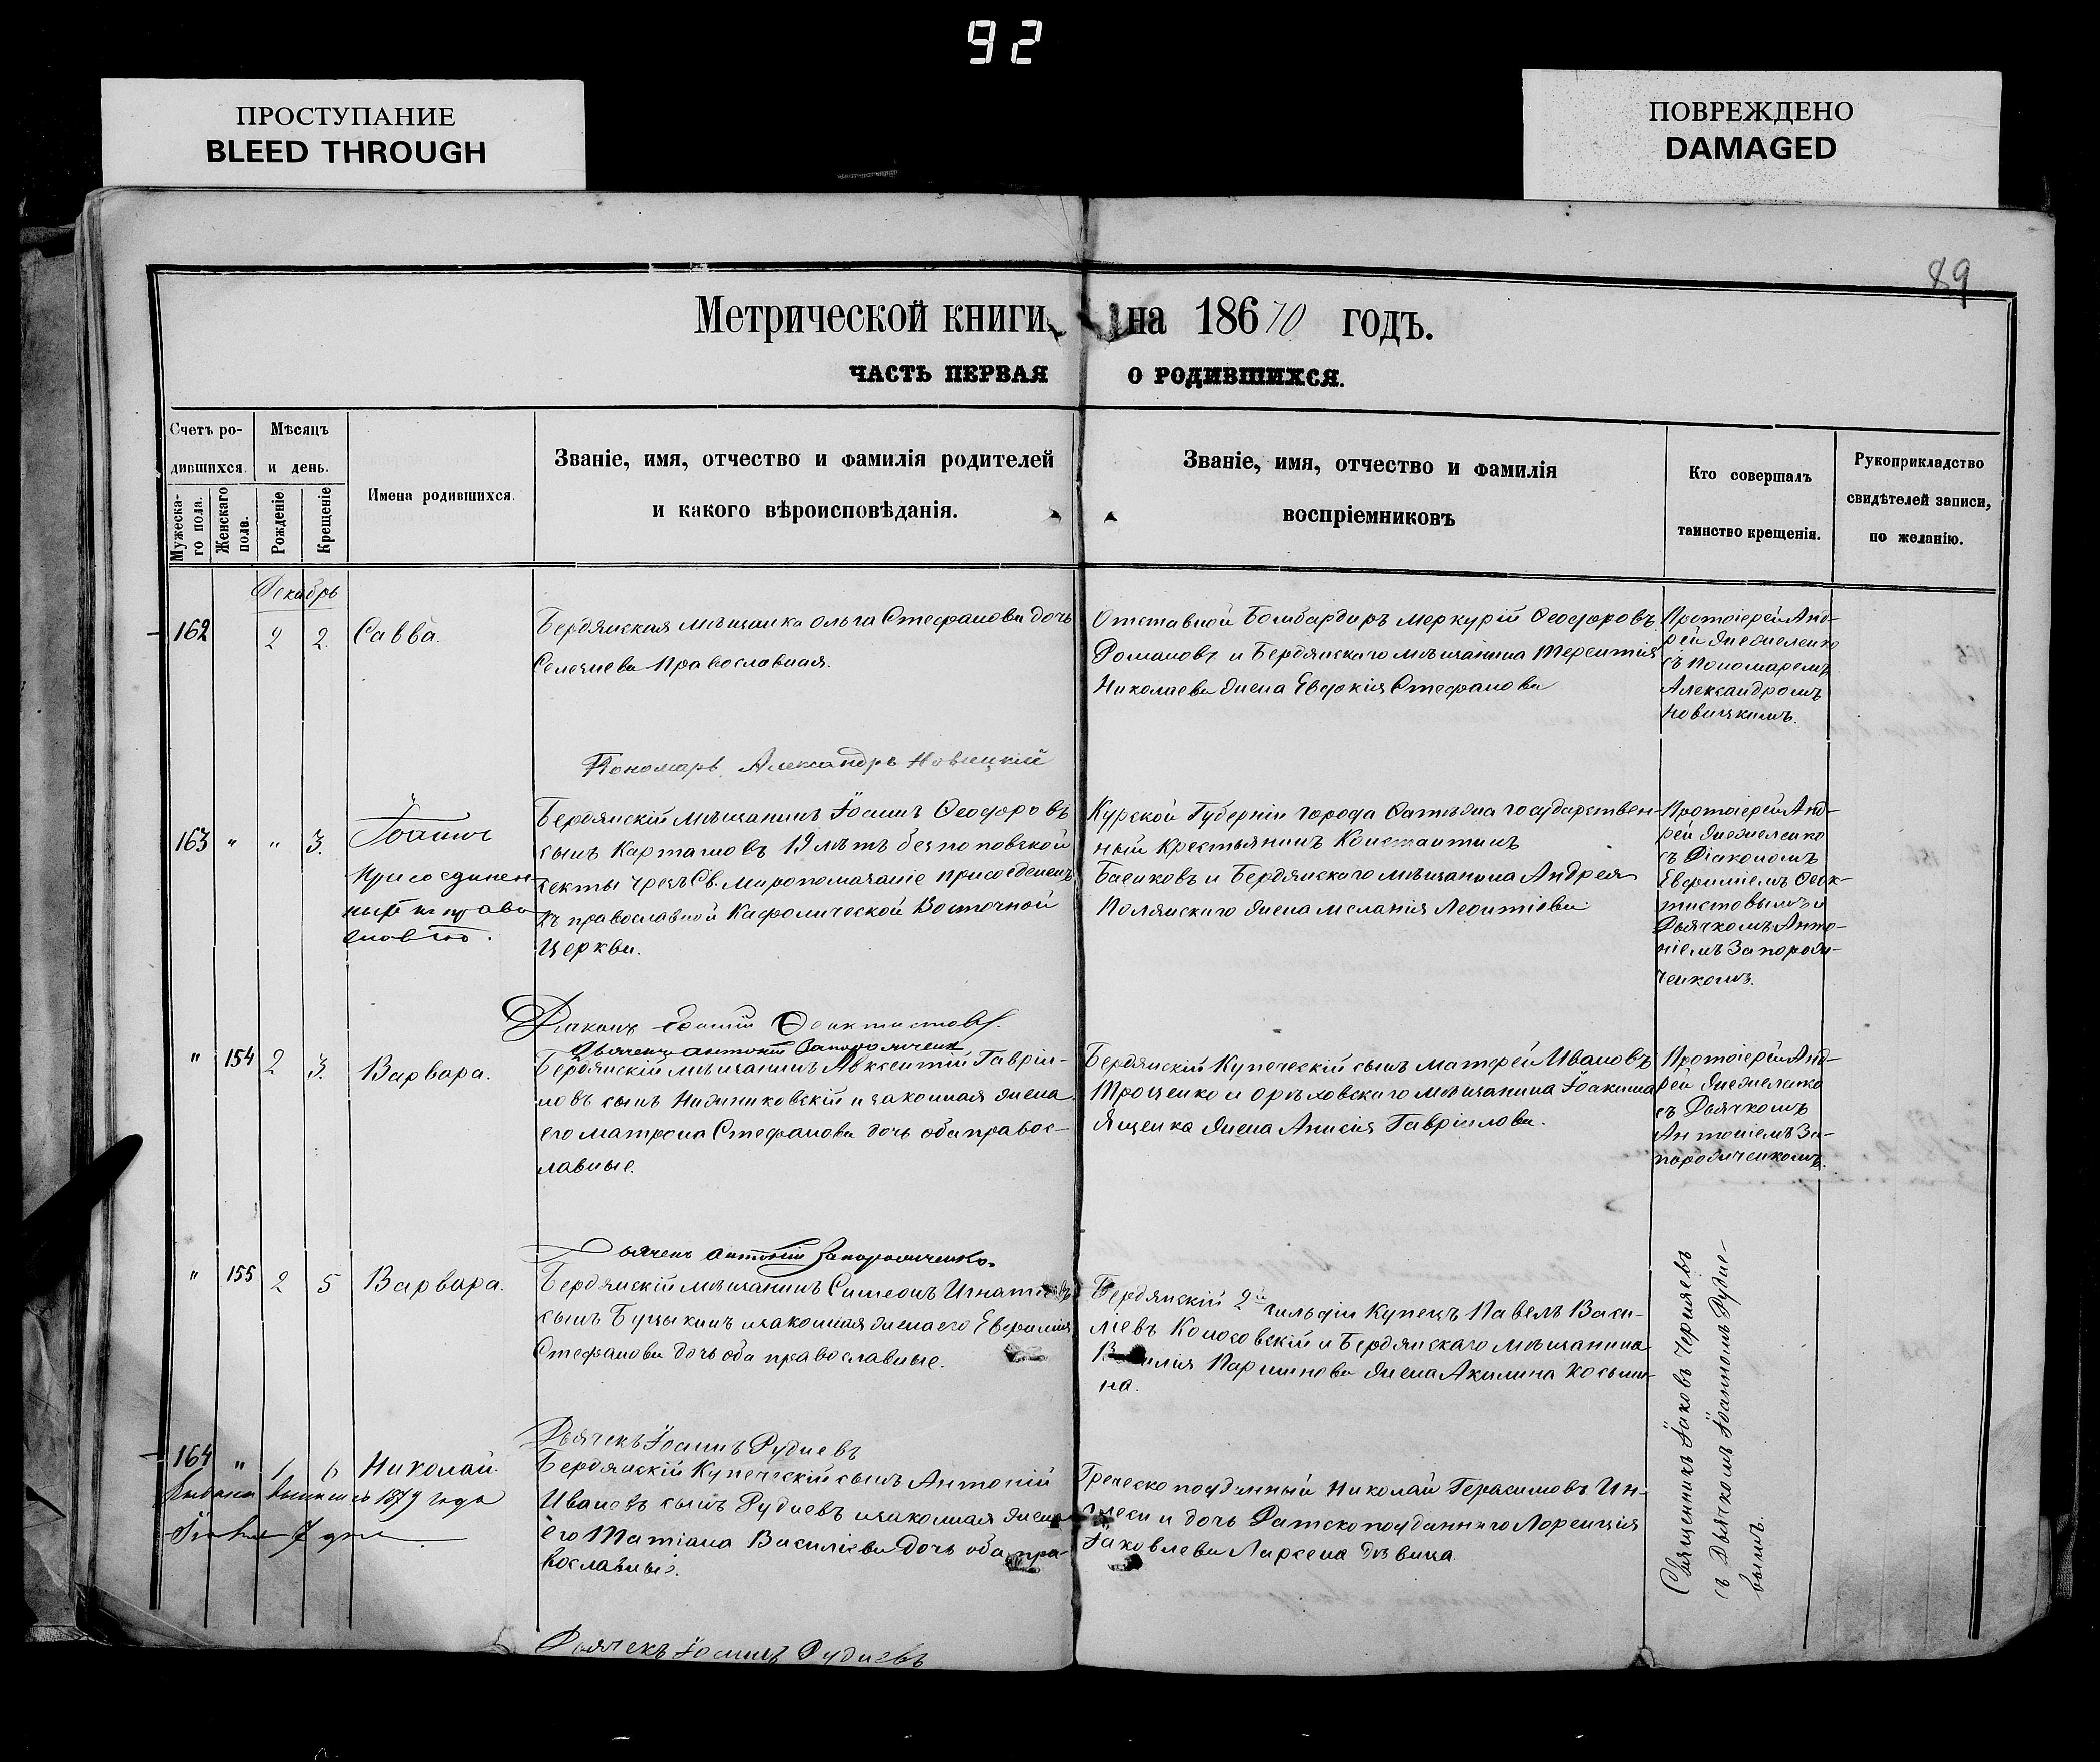 92
ПРОСТУПАНИЕ
BLEED THROUGH
ПОВРЕЖДЕНО
DAMAGED
89
Метрической книги, на 18670 годъ.
ЧАСТЬ ПЕРВАЯ О РОДИВШИХСЯ.
Счетъ ро-
дившихся.
Мужеска-
го пола.
Женскаго
пола.
Мѣсяцъ
и день.
Рожденіе
Крещеніе
Имена родившихся.
Званіе, имя, отчество и фамилія родителей
и какого вѣроисповѣданія.
Званіе, имя, отчество и фамилія
воспріемниковъ
Кто совершалъ
таинство крещенія.
Рукоприкладство
свидѣтелей записи,
по желанію.
Декабрь
162 2 2. Савва.
Бердянская мѣщанка Ольга Стефанова дочь
Селезнева Православная.
Отставной Бомбардиръ Меркурій Ѳеодоровъ
Романовъ и Бердянскаго мѣщанина Терентія
Николаева жена Евфокія Стефанова
Протоіерей Анд-
рей
съ Пономаремъ
Александромъ
Новицкимъ.
Пономарь Александръ Новицкій
163 " " 3. Іоаннъ
Присоединен-
ный къ право
славію.
Бердянскій мѣщанинъ Іоаннъ Ѳеодоровъ
сынъ Карташовъ 19 лѣтъ безпоповской
секты чрезъ Св. Миропомазаніе присоединенъ
къ православной Кафолической Восточной
Церкви.
Курской Губерніи города государствен-
ный крестьянинъ Константинъ
Басиковъ и Бердянскаго мѣщанина Андрея
Полянскаго жена Меланія Леонтіева
Протоіерей Анд-
рей
съ Діакономъ
Евфиміемъ Ѳеок-
тистовымъ и
Дьячкомъ Анто-
ніемъ Запорож-
ченкомъ.
Діаконъ Ѳеоктистовъ.
Дьячекъ Антоній Запорожченко
" 154 2 3. Варвара.
Бердянскій мѣщанинъ Авксентій Гавріи-
ловъ сынъ и законная жена
его Матрона Стефанова дочь оба правос-
лавные.
Бердянскій Купеческій сынъ Матфей Ивановъ
Троценко и Орѣховскаго мѣщанина Іоакима
Яценка жена Анисія Гавріилова.
Протоіерей Анд-
рей
съ Дьячкомъ
Антоніемъ За-
порожченкомъ.
Дьячекъ Антоній Запорожченко.
" 155 2 5 Варвара.
Бердянскій мѣщанинъ Симеонъ Игнатіевъ
сынъ Буцыкинъ и законная жена его Евфимія
Стефанова дочь оба православные.
Бердянскій 2й гильдіи Купецъ Павелъ Васи-
ліевъ Колосовскій и Бердянскаго мѣщанина
Паршинова жена Акилина Косьми-
на.
Священникъ Іаковъ Черняевъ
съ Дьячкомъ Іоанномъ Рудне-
вымъ.
Дьячекъ Іоаннъ Рудневъ
164 " 1 6 Николай.
1879 года
7 дня
Бердянскій Купеческій сынъ Антоній
Ивановъ сынъ Рудневъ и законная жена
его Татіана Василіева дочь оба пра-
вославные.
Греческоподданный Николай Герасимовъ Ин-
глеси и дочь Датскоподданнаго Лоренція
Іаковлева Ларсена дѣвица.
Дьячекъ Іоаннъ Рудневъ